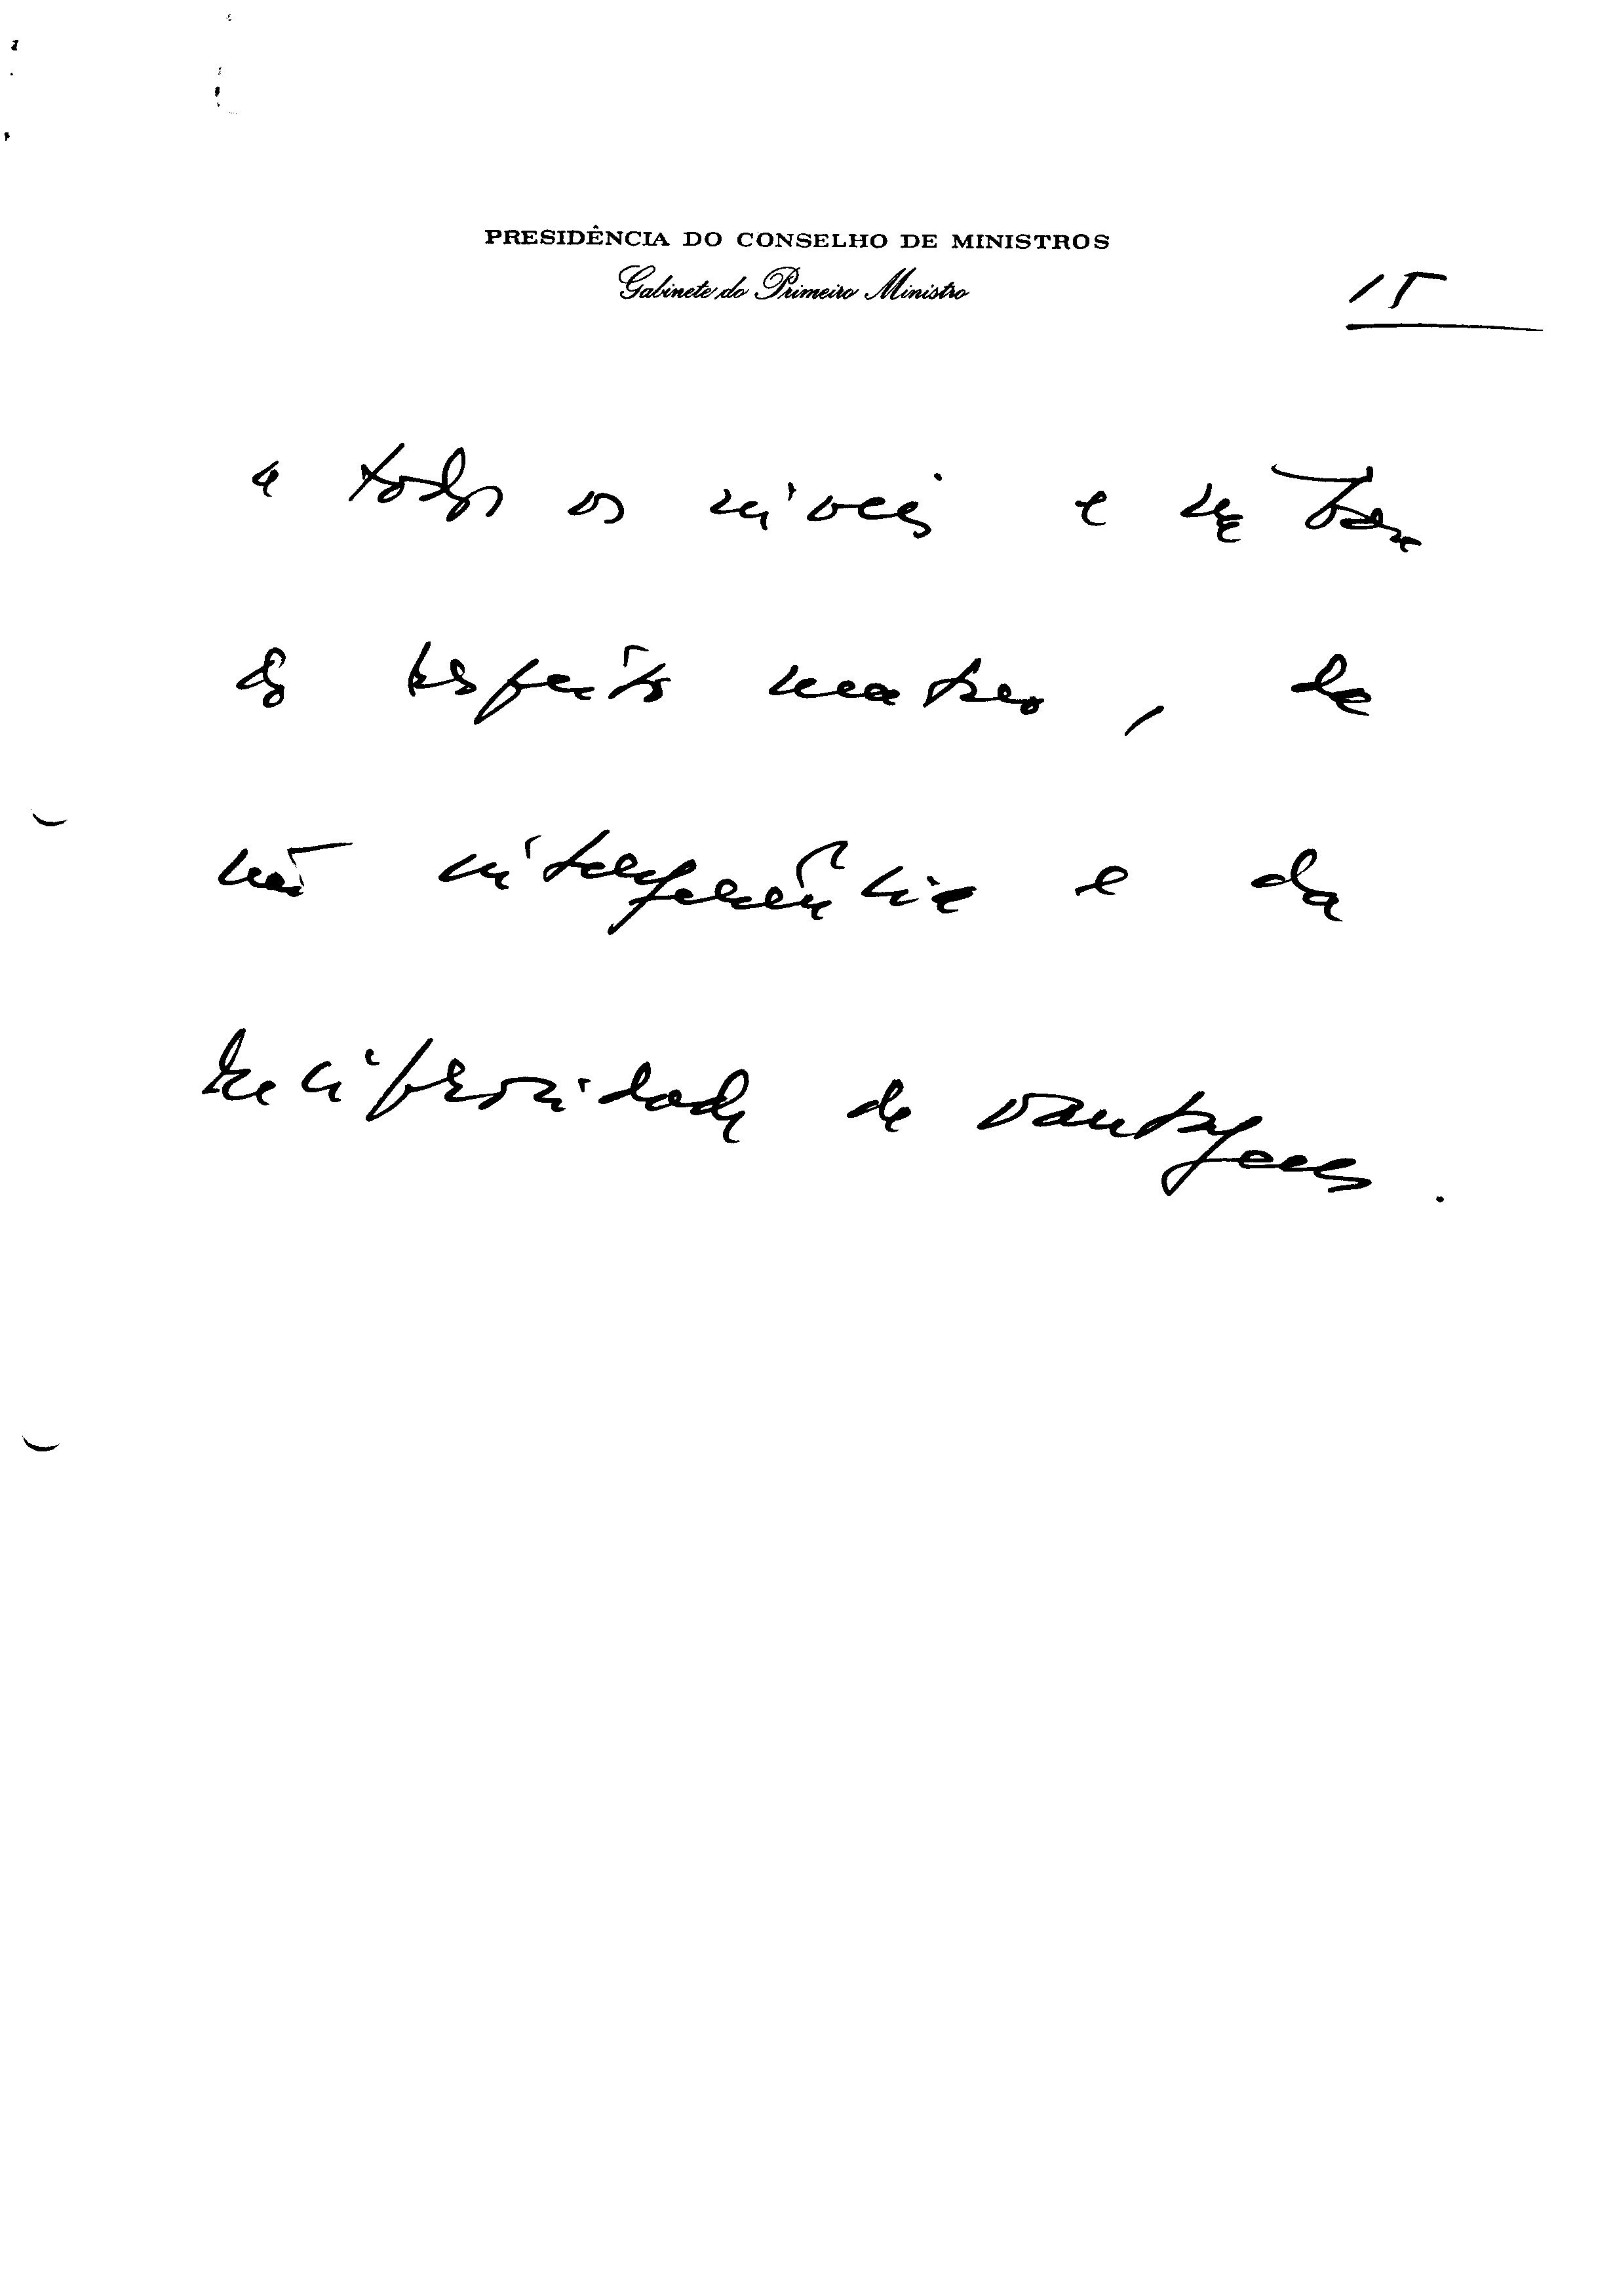 PRESIDÊNCIA DO CONSELHO DE MINISTROS
Gabinete do Primeiro Ministro
15
a todos os níveis e na base
do respeito mútuo, da
não ingerência e da
reciprocidade de vantagens.